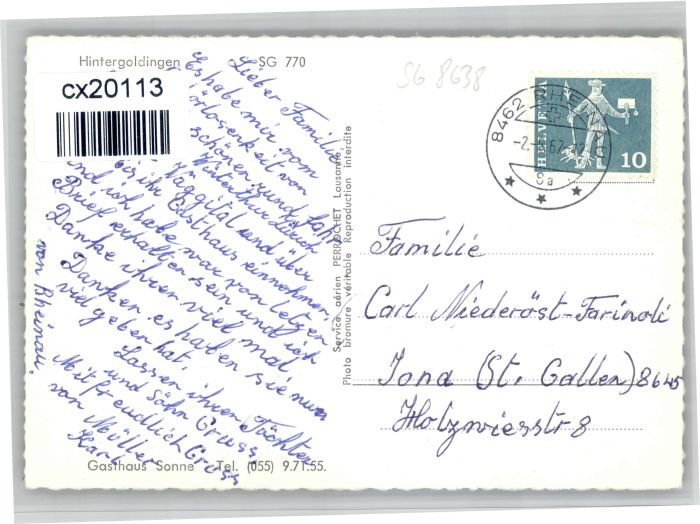 Hintergoldingen SG 770
SG 8638
cx20113
Lieber Familie
Es habe mir vom
schönen
Wäggital und über
Gasthaus einnehmen,
und ich habe war von letzen
Brief erhalten sein und ich
Danke ihrer viel mal
Danken es haben sie nun
viel geben hat.
Lassen ihrer Töchter
und Söhn Gruss,
Mit freudlich Gruss
von Müller
Karl
von Rheinau.
Gasthaus Sonne Tel. (055) 9.71.55.
Service aérien PERROCHET Lausanne
Photo bromure véritable Reproduction interdite
8462 RHEINAU
HELVETIA
10
Familie
Carl Niederöst-Farinoli
Jona (St. Gallen) 8645
Holzwiesstr 8